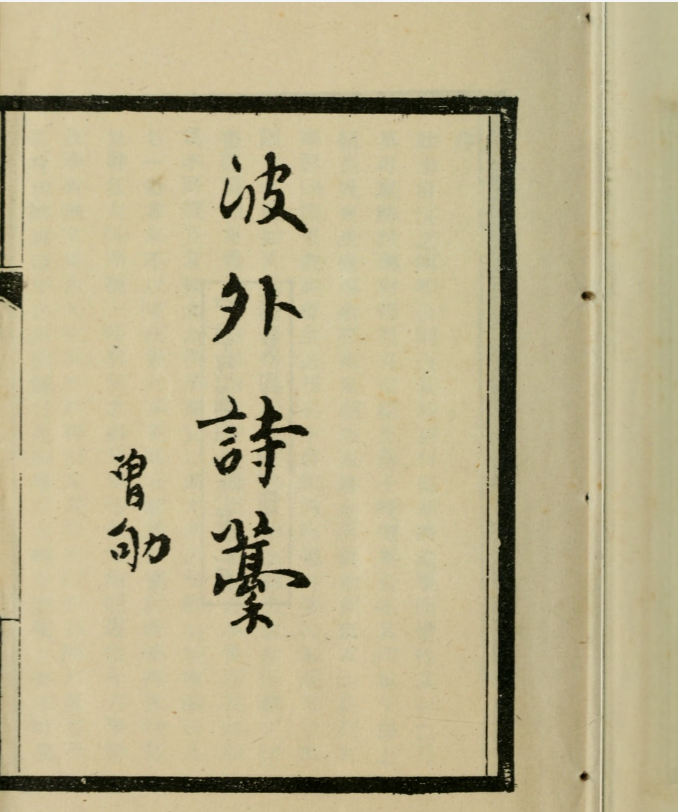 波外詩藁
曾劬